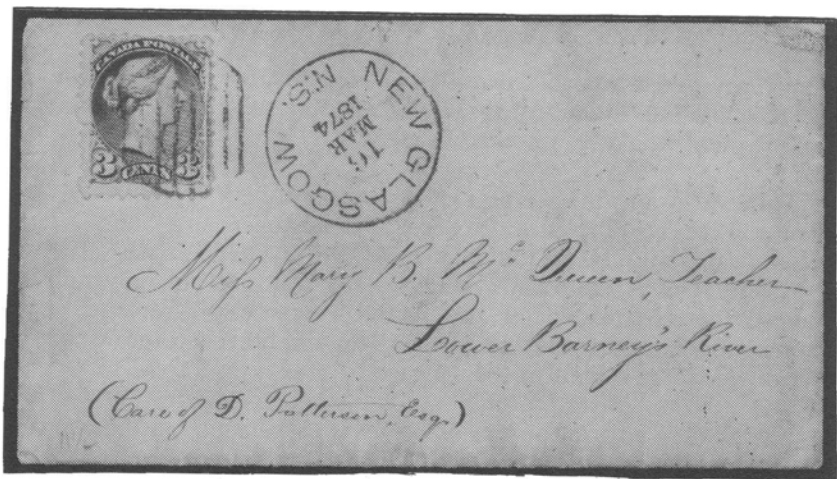 CANADA POSTAGE
3 CENTS 3
NEW GLASGOW N.S.
16
MAR
1874
Miſs Mary B. Mc Queen, Teacher
Lower Barney's River
(Care of D. Patterson, Esq.)